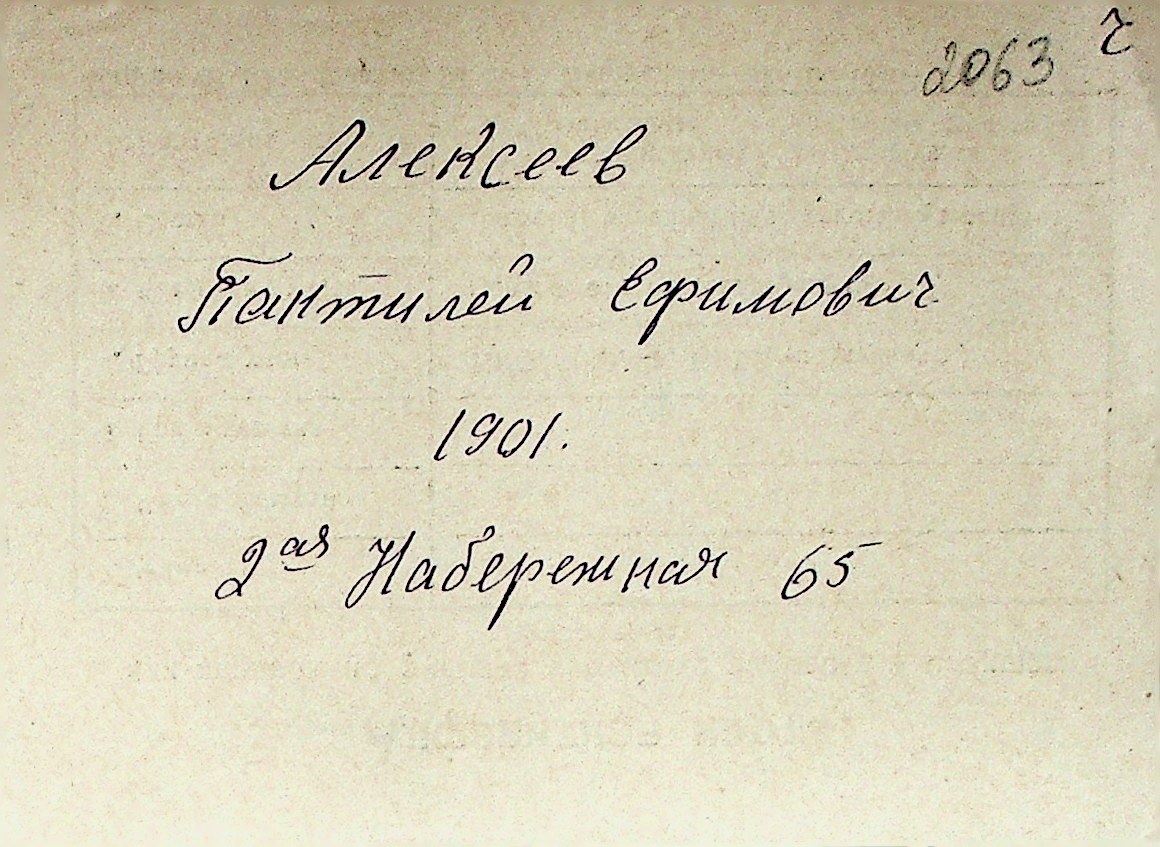 2063 ч
Алексеев
Пантилей Ефимович
1901.
2ая Набережная 65